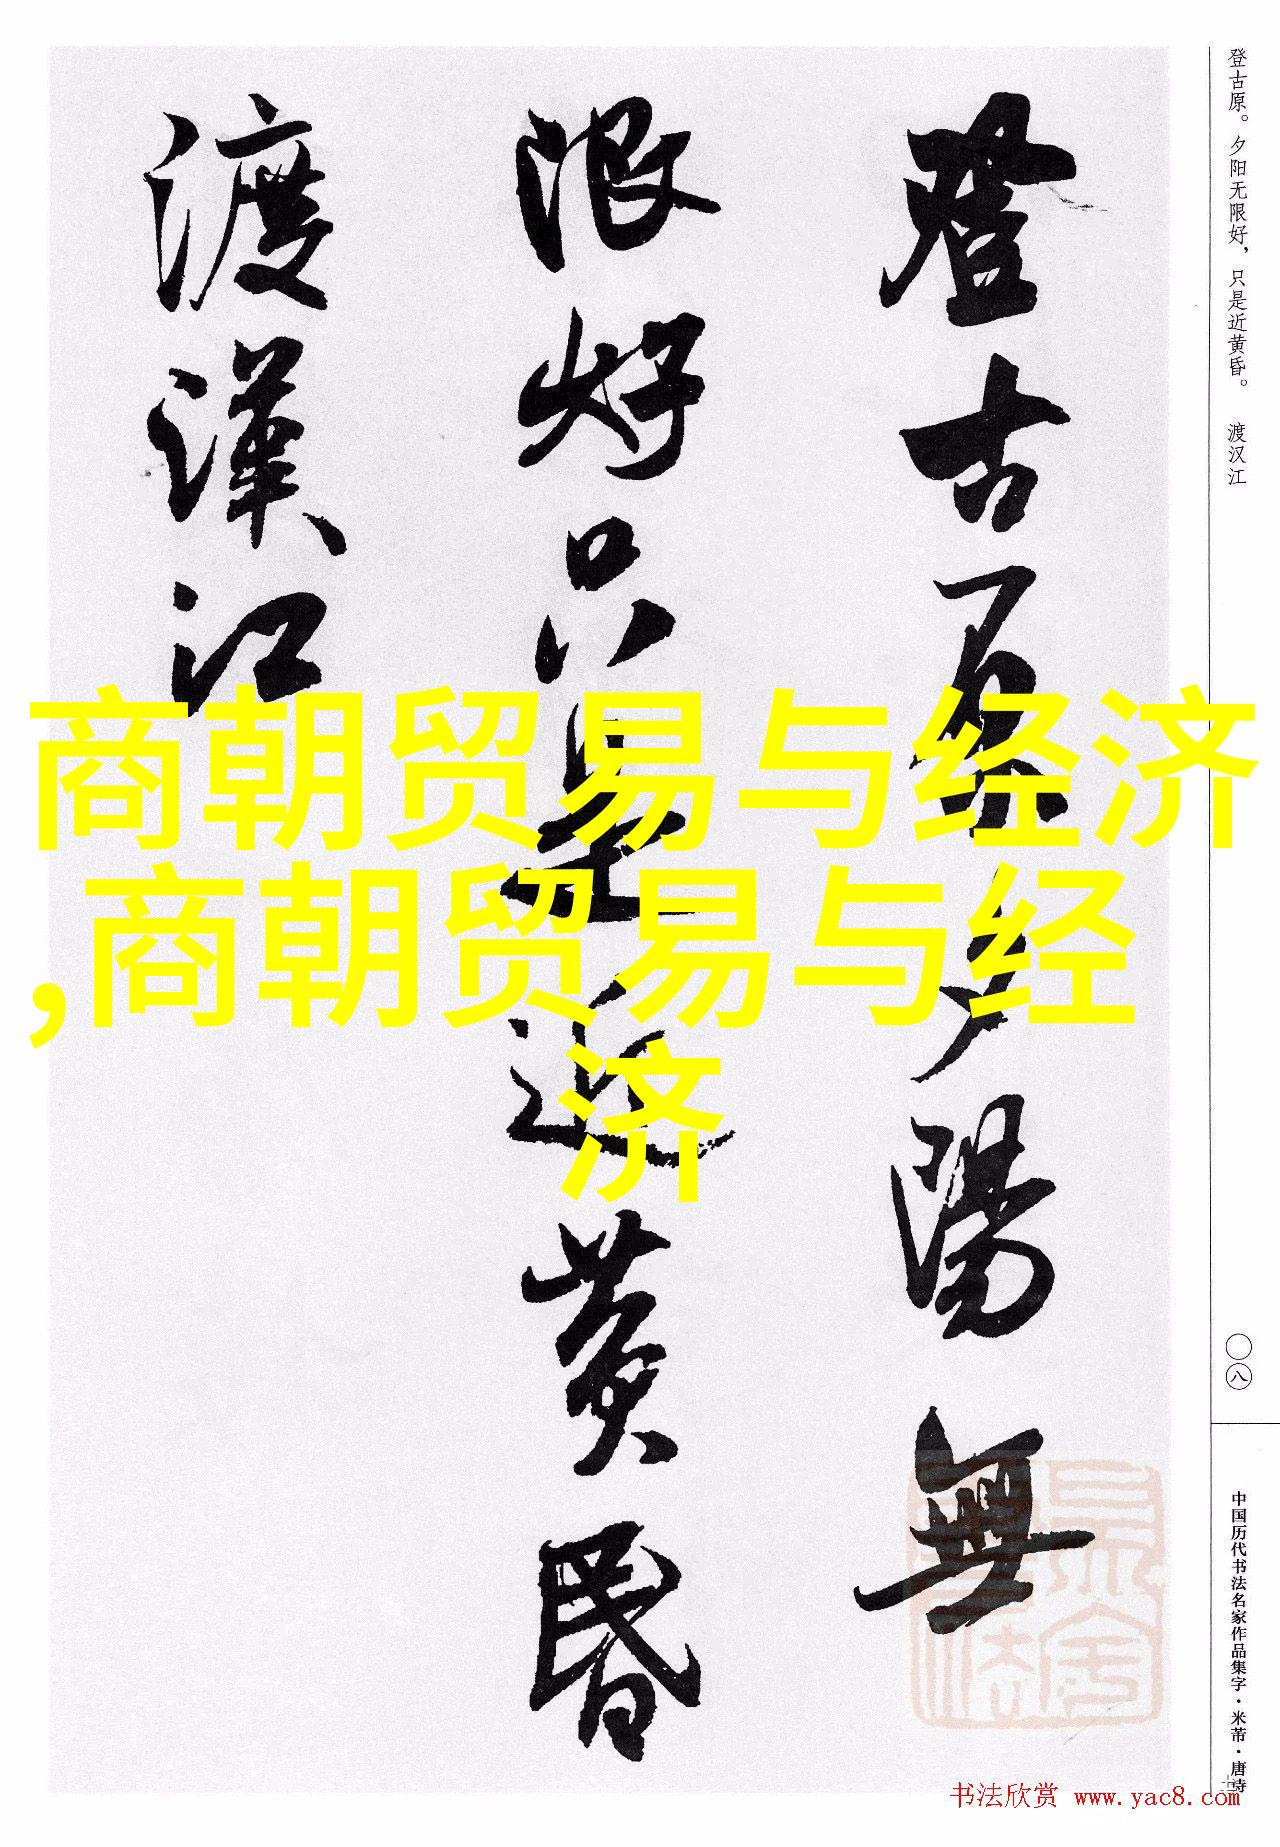 登古原。夕阳无限好，只是近黄昏。 渡汉江
登古原夕陽無
限好只是近黄昏
渡漢江
商朝贸易与经济
,商朝贸易与经
济
〇八
中国历代书法名家作品集字·米芾·唐诗
书法欣赏 www.yac8.com